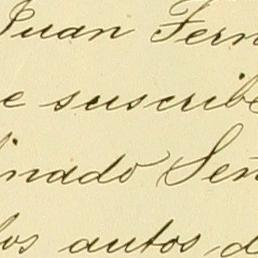 Juan Fern
e suscribe
inado Señ
los autos, d